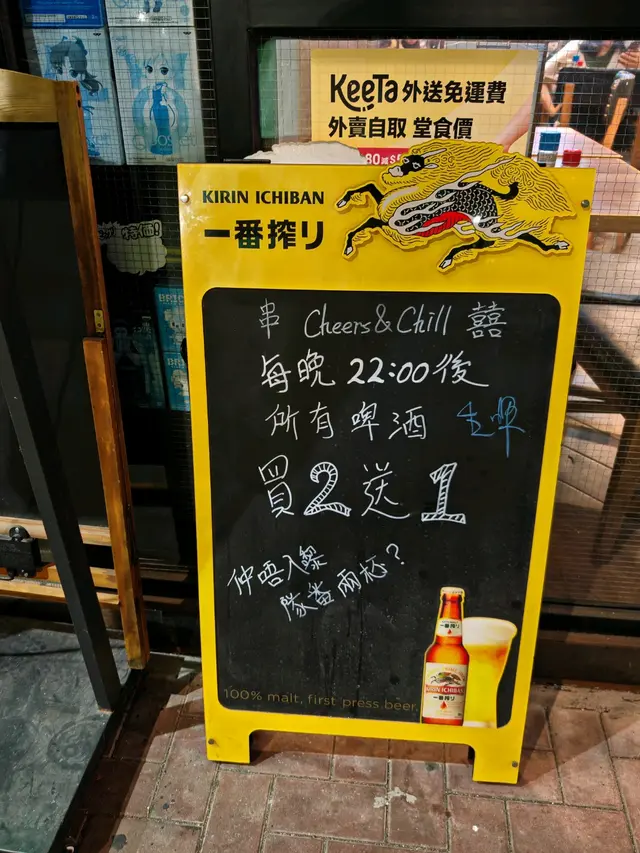 KeeTa 外送免運費
外賣自取 堂食價
KIRIN ICHIBAN
一番搾り
串 Cheers&Chill 囍
每晚 22:00後
所有啤酒 生啤
買2送1
仲唔入嚟
隊番兩杯?
一番搾り
KIRIN ICHIBAN
一番搾り
100% malt, first press beer.